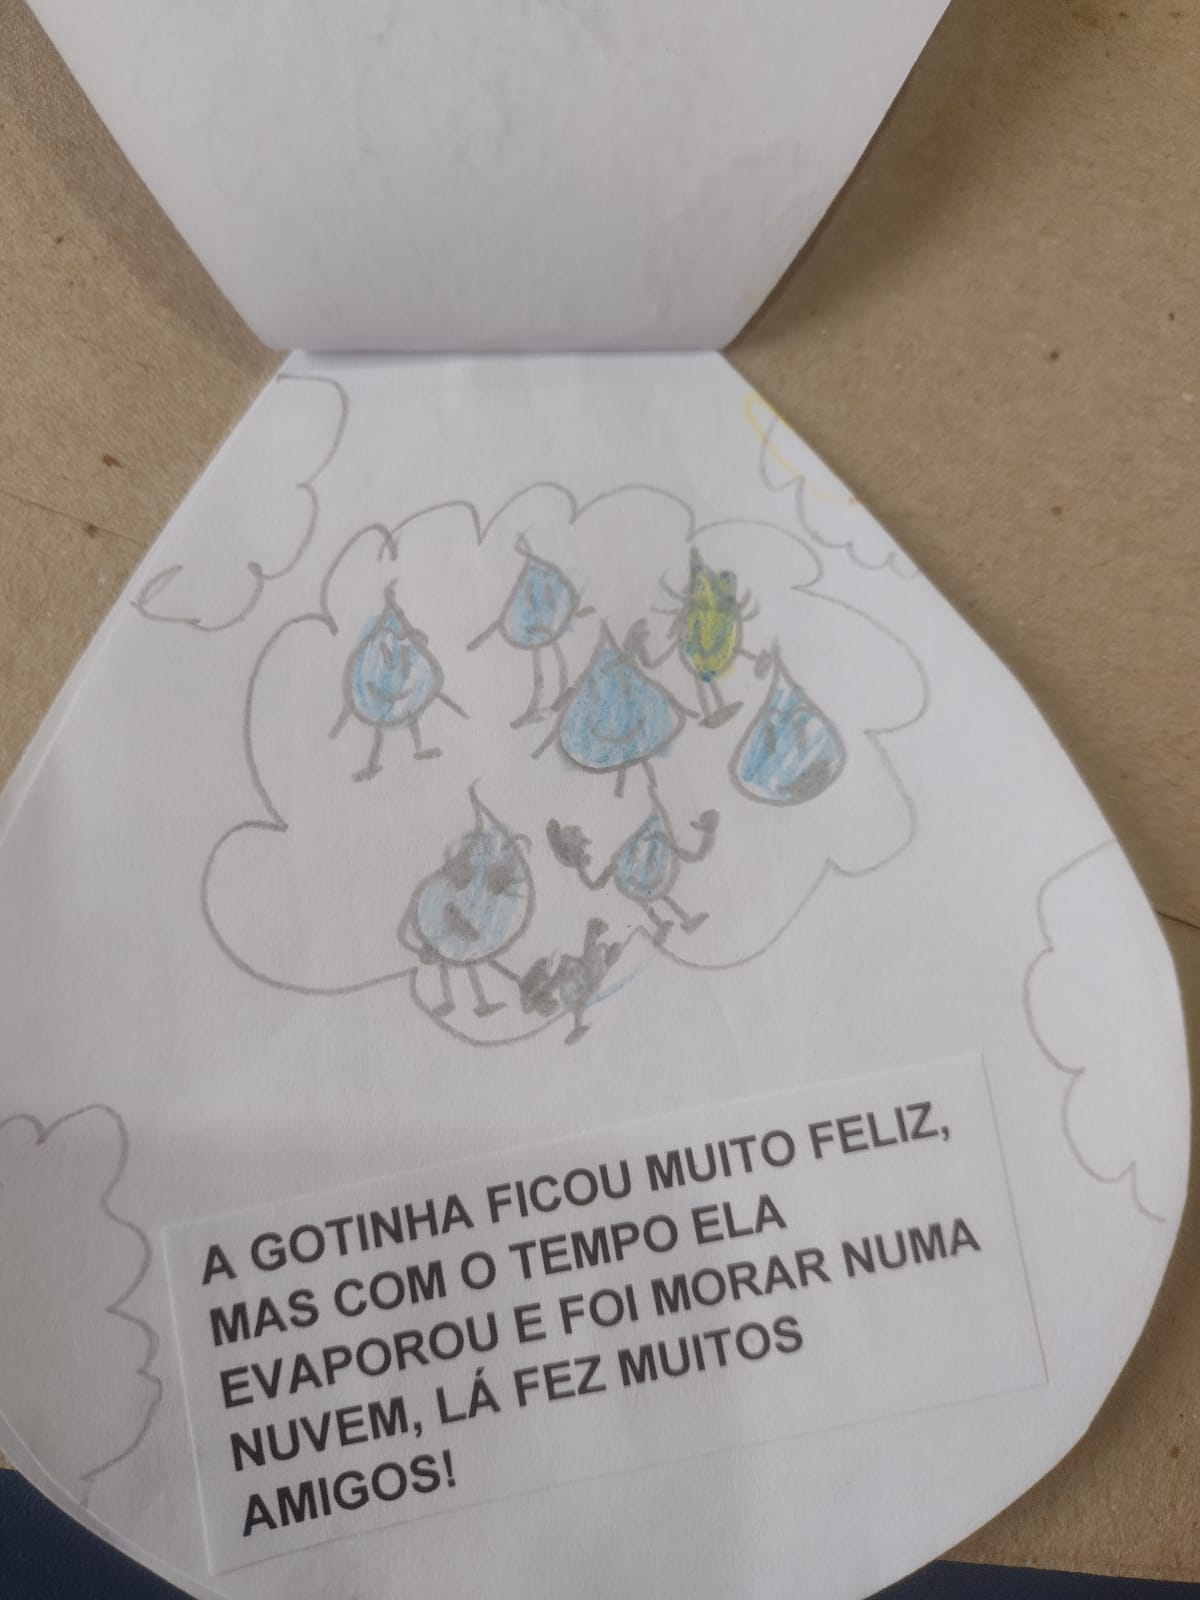 A GOTINHA FICOU MUITO FELIZ,
MAS COM O TEMPO ELA
EVAPOROU E FOI MORAR NUMA
NUVEM, LÁ FEZ MUITOS
AMIGOS!